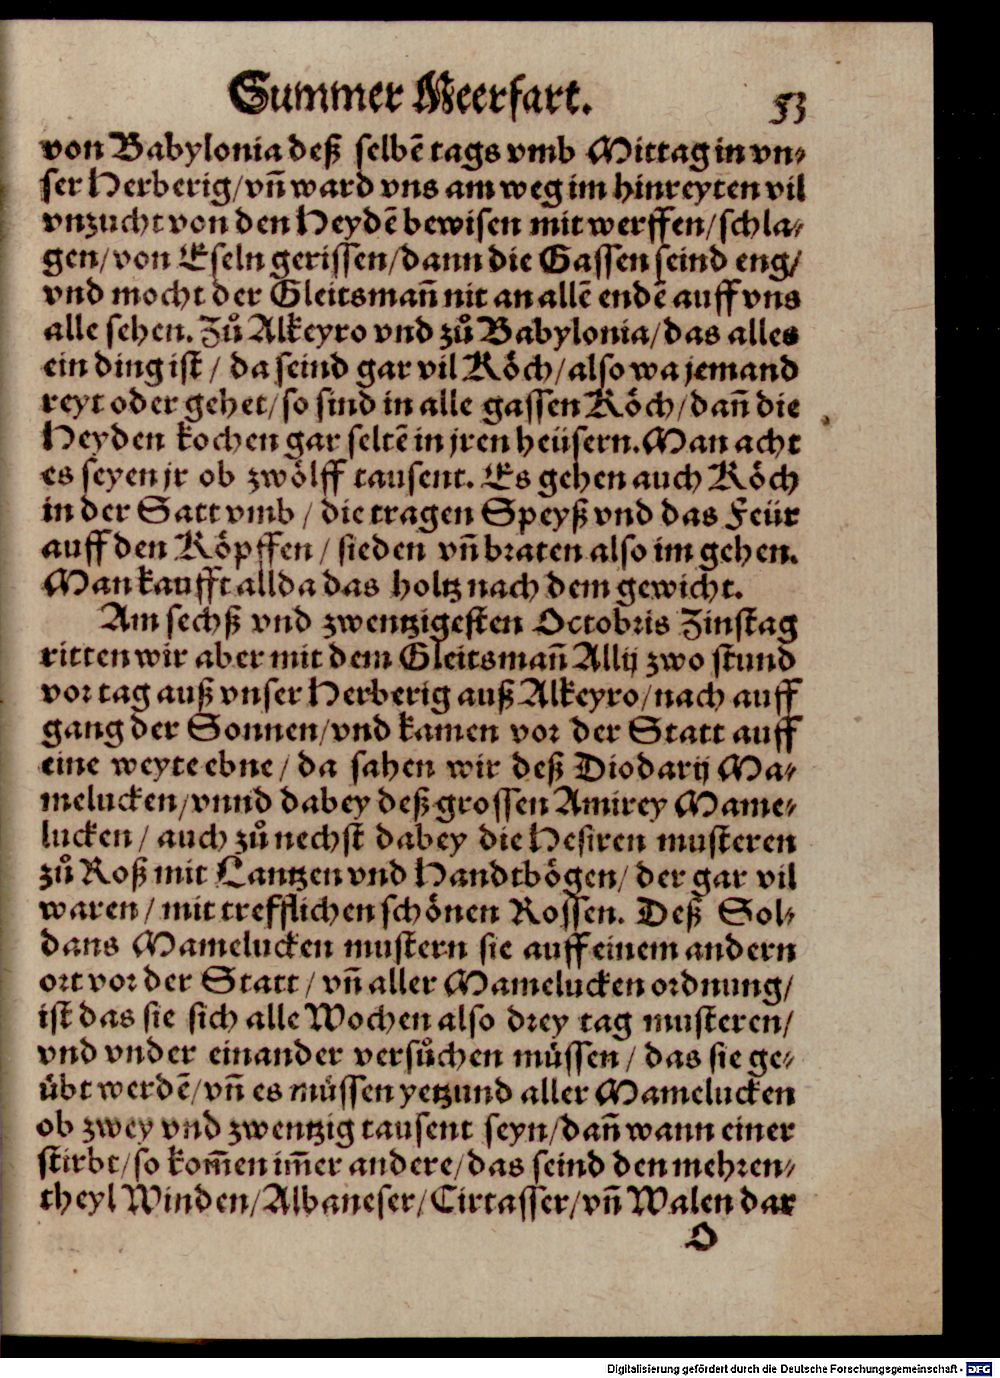 Summer Meerfart. 53
von Babylonia deß selbē tags vmb Mittag in vn-
ser Herberig/vn̄ ward vns am weg im hinreyten vil
vnzucht von den Heydē bewisen mit werffen/schla-
gen/von Eseln gerissen/dann die Gassen seind eng/
vnd mocht der Gleitsman̄ nit an allē endē auff vns
alle sehen. Zů Alkeyro vnd zů Babylonia/das alles
ein ding ist/ da seind gar vil Köch/also wa jemand
reyt oder gehet/so sind in alle gassen Köch/dan̄ die
Heyden kochen gar seltē in jren heüsern. Man acht
es seyen jr ob zwölff tausent. Es gehen auch Köch
in der Satt vmb / die tragen Speyß vnd das Feür
auff den Köpffen/ sieden vn̄ braten also im gehen.
Man kaufft allda das holtz nach dem gewicht.
Am sechß vnd zwentzigesten Octobris Zinstag
ritten wir aber mit dem Gleitsman̄ Allij zwo stund
vor tag auß vnser Herberig auß Alkeyro/nach auff
gang der Sonnen/vnd kamen vor der Statt auff
eine weyte ebne/ da sahen wir deß Diodarij Ma-
melucken/vnnd dabey deß grossen Amirey Mame-
lucken/ auch zů nechst dabey die Hesiren musteren
zů Roß mit Lantzen vnd Handtbögen/ der gar vil
waren/ mit trefflichen schönen Rossen. Deß Sol-
dans Mamelucken mustern sie auff einem andern
ort vor der Statt/ vn̄ aller Mamelucken ordnung/
ist das sie sich alle Wochen also drey tag musteren/
vnd vnder einander versůchen müssen/ das sie ge-
übt werdē/vn̄ es müssen yetzund aller Mamelucken
ob zwey vnd zwentzig tausent seyn/dan̄ wann einer
stirbt/so kom̄en im̄er andere/das seind den mehren-
theyl Winden/Albaneser/Cirtasser/vn̄ Walen dar
O
Digitalisierung gefördert durch die Deutsche Forschungsgemeinschaft - DFG